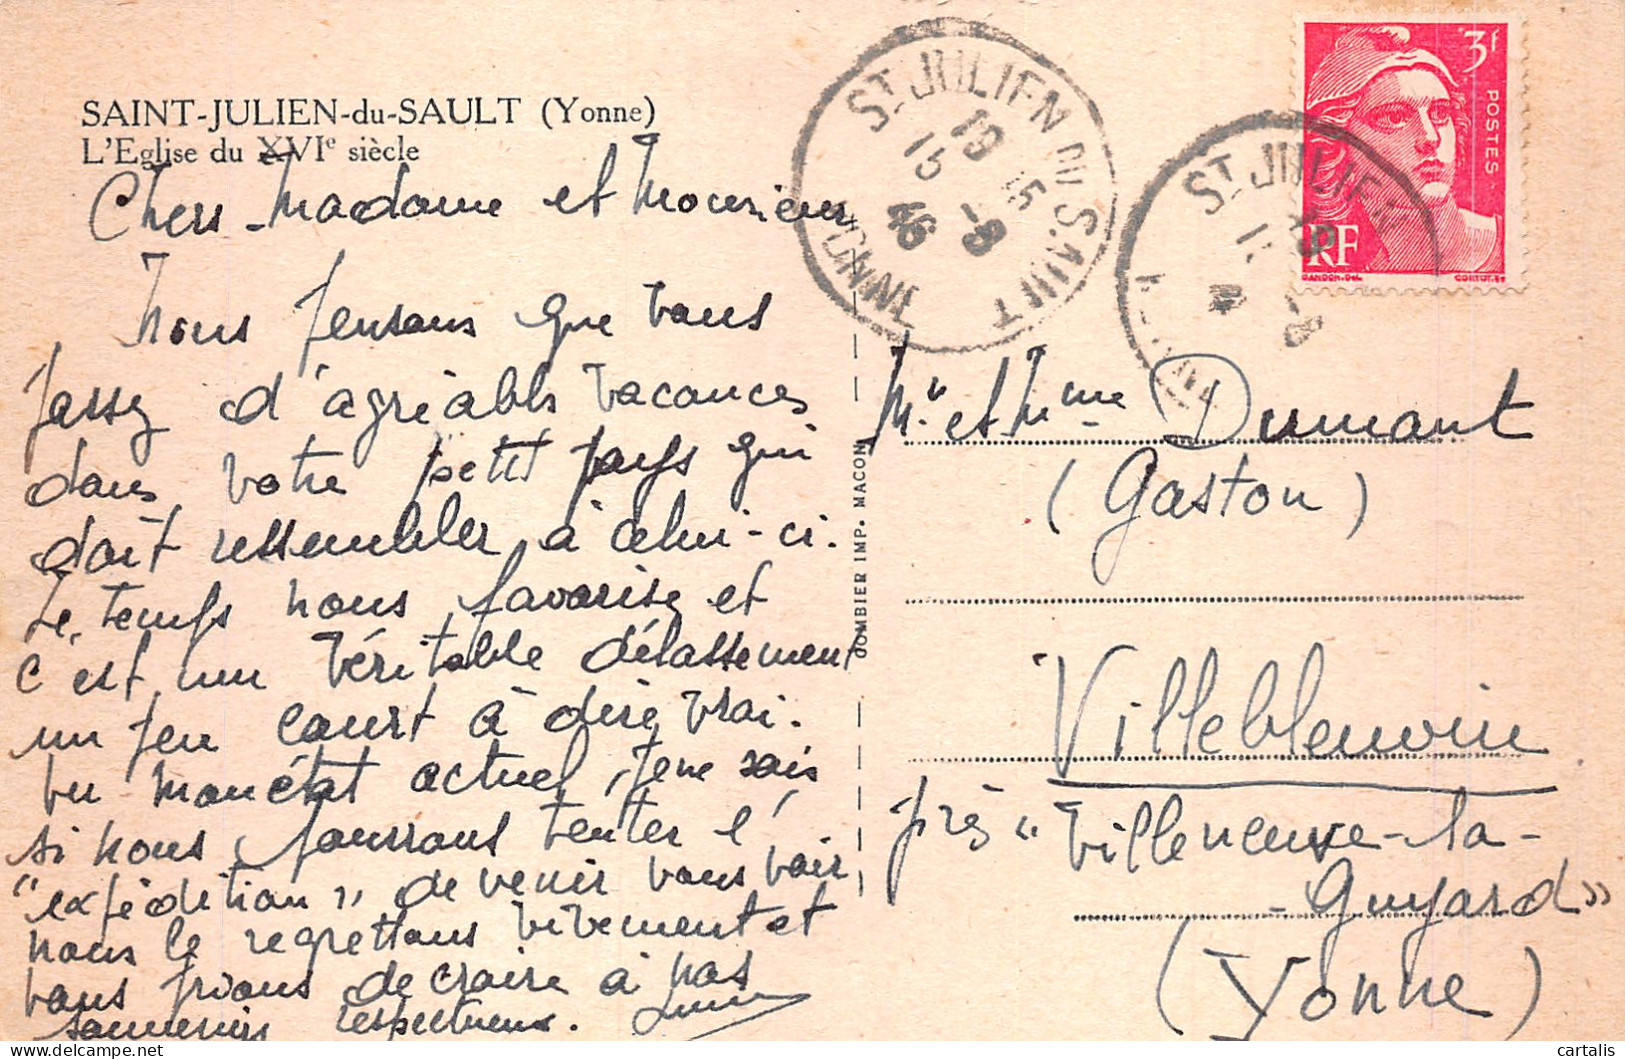 SAINT-JULIEN-du-SAULT (Yonne)
L'Eglise du XVIe siècle
Chers Madame et Monsieur
Nous pensons que vous
passez d'agréables vacances
dans votre petit pays qui
doit ressembler à celui-ci.
Le temps nous favorise et
c'est un véritable délassement
un peu court à dire vrai.
Vu mon état actuel, je ne sais
si nous pourrons tenter l'
"expédition" de venir vous voir
nous le regrettons vivement et
vous prions de croire à nos
souvenirs respectueux.
COMBIER IMP. MACON
ST JULIEN DU SAULT
19 15
15 -8
46
YONNE
ST JULIEN
-8
3f
POSTES
RF
GANDON-DEL.
CORTOT-SC
Mr et Mme Dumant
(Gaston)
Villeblevin
près "Villeneuve-la-
-Guyard"
(Yonne)
cartalis